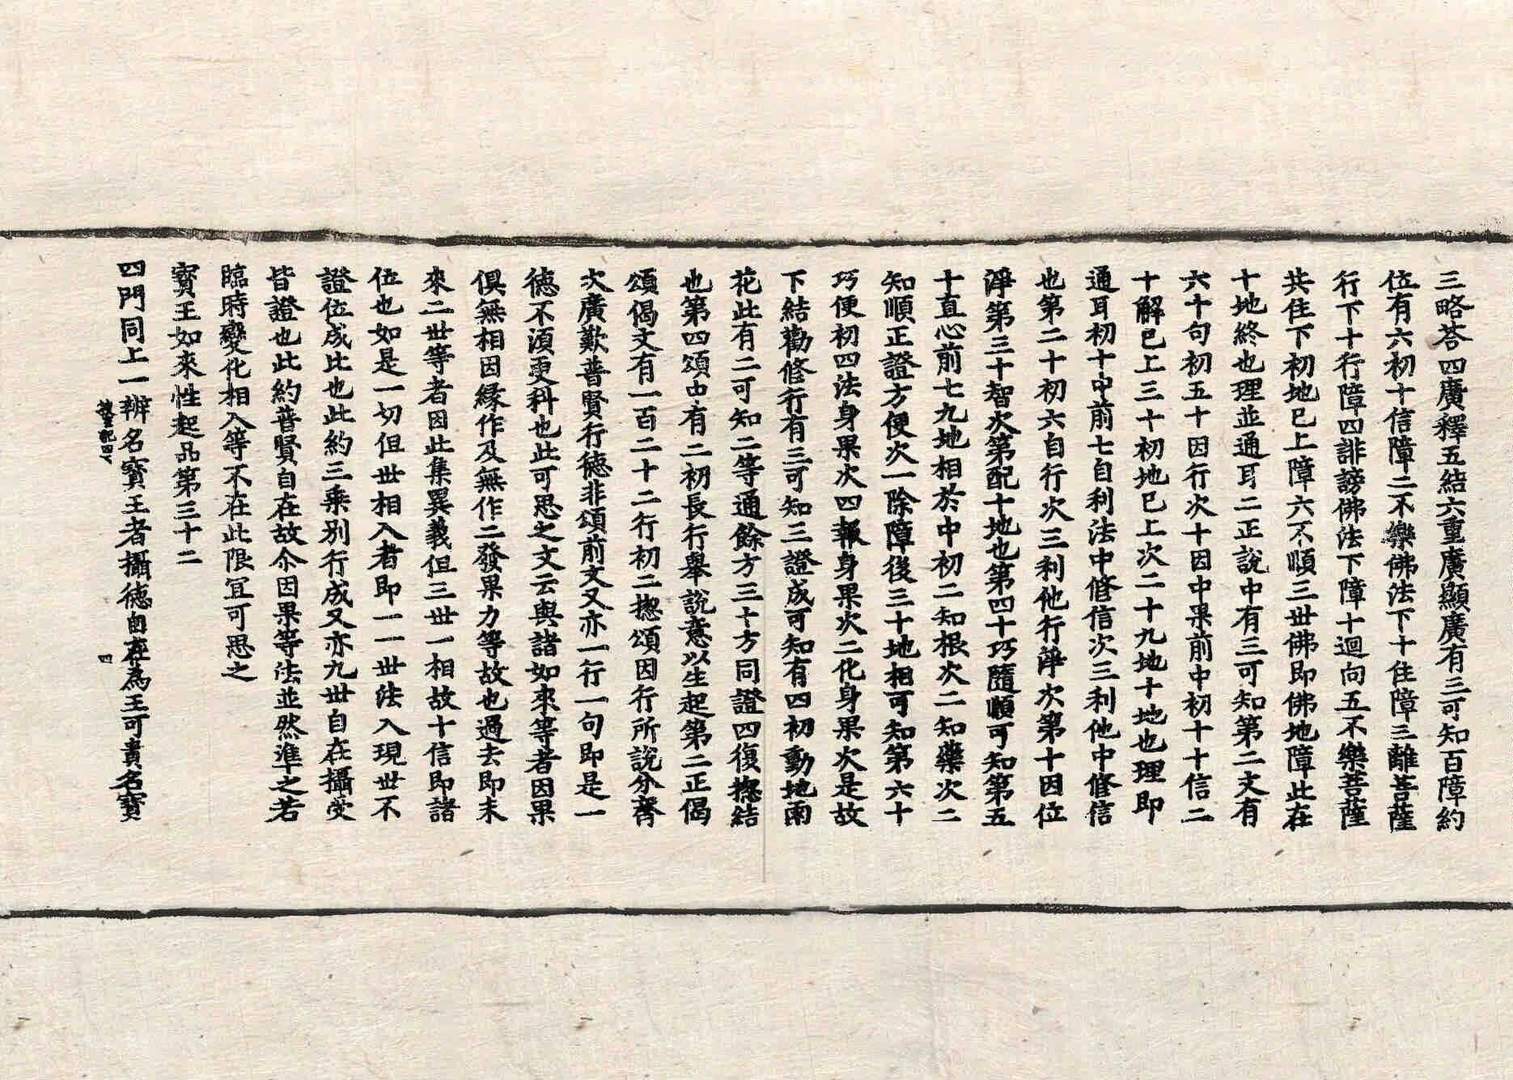 三略答四廣釋五結六重廣顯廣有三可知百障約
位有六初十信障二不樂佛法下十住障三離菩薩
行下十行障四誹謗佛法下障十迴向五不樂菩薩
共住下初地已上障六不順三世佛即佛地障此在
十地終也理並通耳二正説中有三可知第二文有
六十句初五十因行次十因中果前中初十十信二
十解已上三十初地已上次二十九地十地也理即
通耳初十中前七自利法中修信次三利他中修信
也第二十初六自行次三利他行淨次第十因位
淨第三十智次第配十地也第四十巧隨順可知第五
十直心前七九地相於中初二知根次二知藥次二
知順正證方便次一除障後三十地相可知第六十
巧便初四法身果次四報身果次二化身果次是故
下結勸修行有三可知三證成可知有四初動地雨
花此有二可知二等通餘方三十方同證四復揔結
也第四頌中有二初長行舉説意以生起第二正偈
頌偈文有一百二十二行初二揔頌因行所説分齊
次廣歎普賢行德非頌前文又亦一行一句即是一
德不湏更科也此可思之文云與諸如來等者因果
俱無相因縁作及無作二發果力等故也過去即未
來二世等者因此集異義但三世一相故十信即諸
位也如是一切但世相入者即一一世法入現世不
證位成比也此約三乘別行成又亦九世自在攝受
皆證也此約普賢自在故尒因果等法並然準之若
臨時變化相入等不在此限冝可思之
寳王如來性起品第三十二
四門同上一辨名寳王者攝德自在為王可貴名寳
四